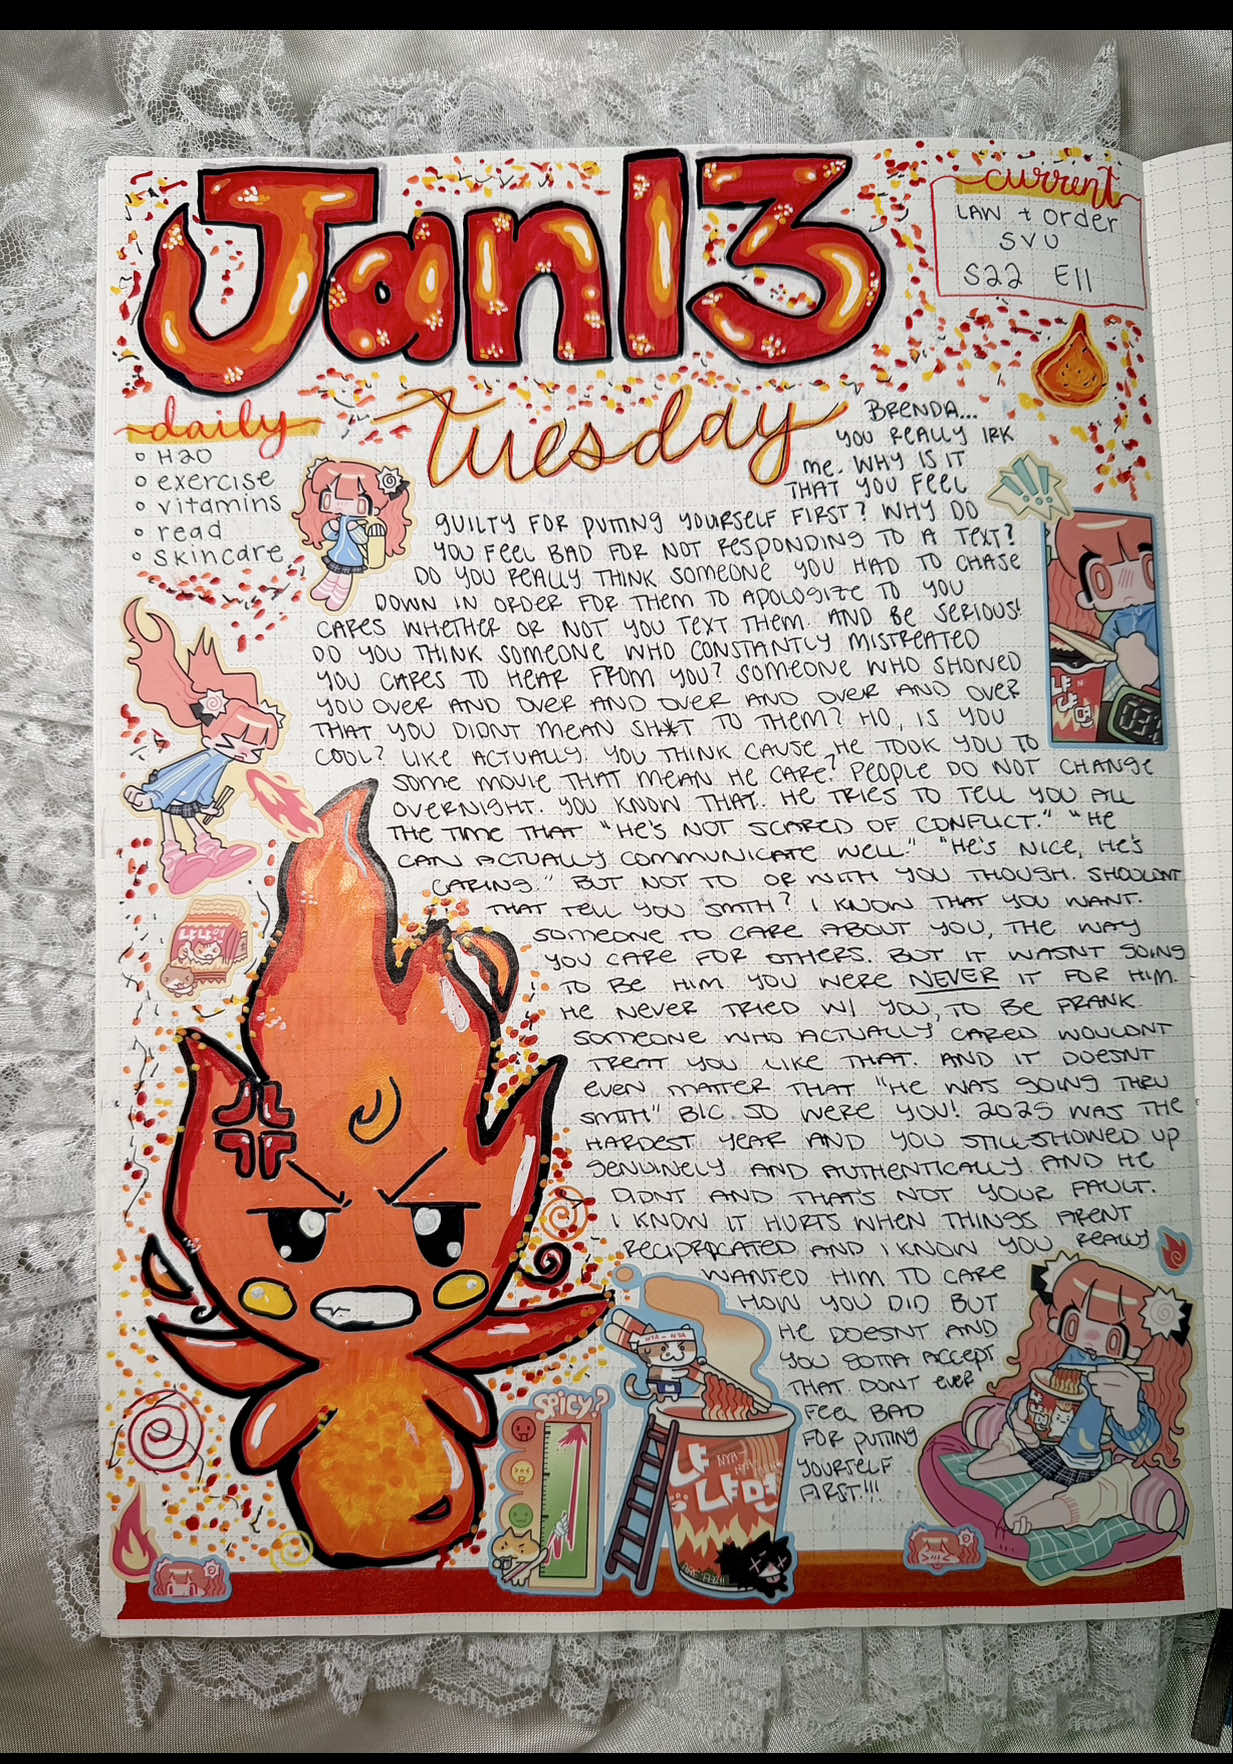 Jan13
current
LAW + Order
SVU
S22 E11
Tuesday
daily
H2O
exercise
vitamins
read
skincare
BRENDA...
YOU REALLY IRK
ME. WHY IS IT
THAT YOU FEEL
GUILTY FOR PUTTING YOURSELF FIRST? WHY DO
YOU FEEL BAD FOR NOT RESPONDING TO A TEXT?
DO YOU REALLY THINK SOMEONE YOU HAD TO CHASE
DOWN IN ORDER FOR THEM TO APOLOGIZE TO YOU
CARES WHETHER OR NOT YOU TEXT THEM. AND BE SERIOUS!
DO YOU THINK SOMEONE WHO CONSTANTLY MISTREATED
YOU CARES TO HEAR FROM YOU? SOMEONE WHO SHOWED
YOU OVER AND OVER AND OVER AND OVER AND OVER
THAT YOU DIDNT MEAN SH*T TO THEM? HO, IS YOU
COOL? LIKE ACTUALLY. YOU THINK CAUSE HE TOOK YOU TO
SOME MOVIE THAT MEAN HE CARE? PEOPLE DO NOT CHANGE
OVERNIGHT. YOU KNOW THAT. HE TRIES TO TELL YOU ALL
THE TIME THAT "HE'S NOT SCARED OF CONFLICT." "HE
CAN ACTUALLY COMMUNICATE WELL" "HE'S NICE, HE'S
CARING." BUT NOT TO OR WITH YOU THOUGH. SHOULDNT
THAT TELL YOU SMTH? I KNOW THAT YOU WANT.
SOMEONE TO CARE ABOUT YOU, THE WAY
YOU CARE FOR OTHERS. BUT IT WASNT GOING
TO BE HIM. YOU WERE NEVER IT FOR HIM.
HE NEVER TRIED W/ YOU, TO BE FRANK.
SOMEONE WHO ACTUALLY CARED WOULDNT
TREAT YOU LIKE THAT. AND IT DOESNT
EVEN MATTER THAT "HE WAS GOING THRU
SMTH" B/C SO WERE YOU! 2025 WAS THE
HARDEST YEAR AND YOU STILL SHOWED UP
GENUINELY AND AUTHENTICALLY AND HE
DIDNT AND THAT'S NOT YOUR FAULT.
I KNOW IT HURTS WHEN THINGS ARENT
RECIPROCATED AND I KNOW YOU REALLY
WANTED HIM TO CARE
HOW YOU DID BUT
HE DOESNT AND
YOU GOTTA ACCEPT
THAT. DONT EVER
FEEL BAD
FOR PUTTING
YOURSELF
FIRST!!!
Spicy?
NYA-NYA
냐
냐면